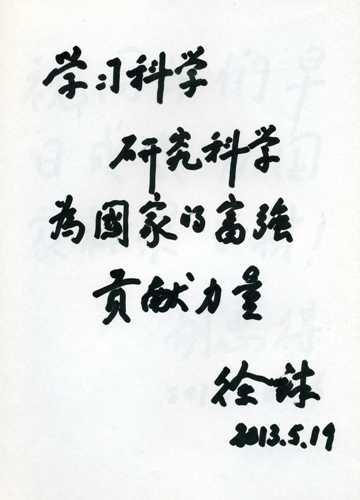 学习科学
研究科学
為國家的富強
贡献力量
徐銤
2013.5.19